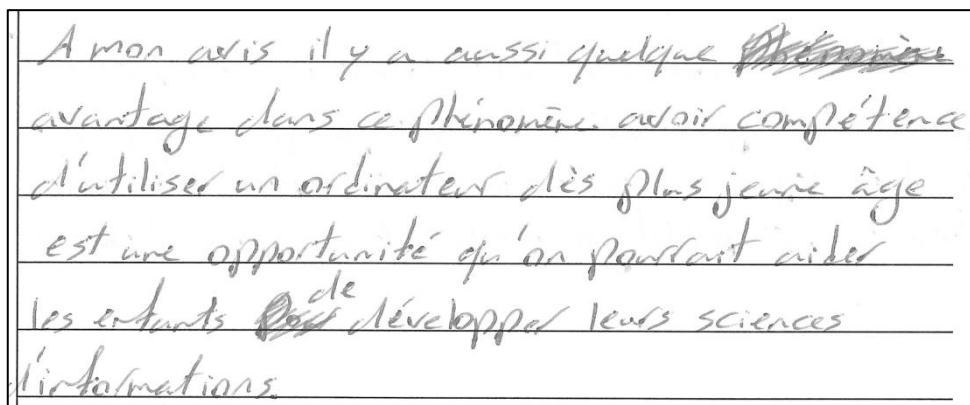 A mon avis il y a aussi quelque
avantage dans ce phénomène. avoir compétence
d'utiliser un ordinateur dès plus jeune âge
est une opportunité qu'on pourrait aider
les enfants de développer leurs sciences
d'informations.